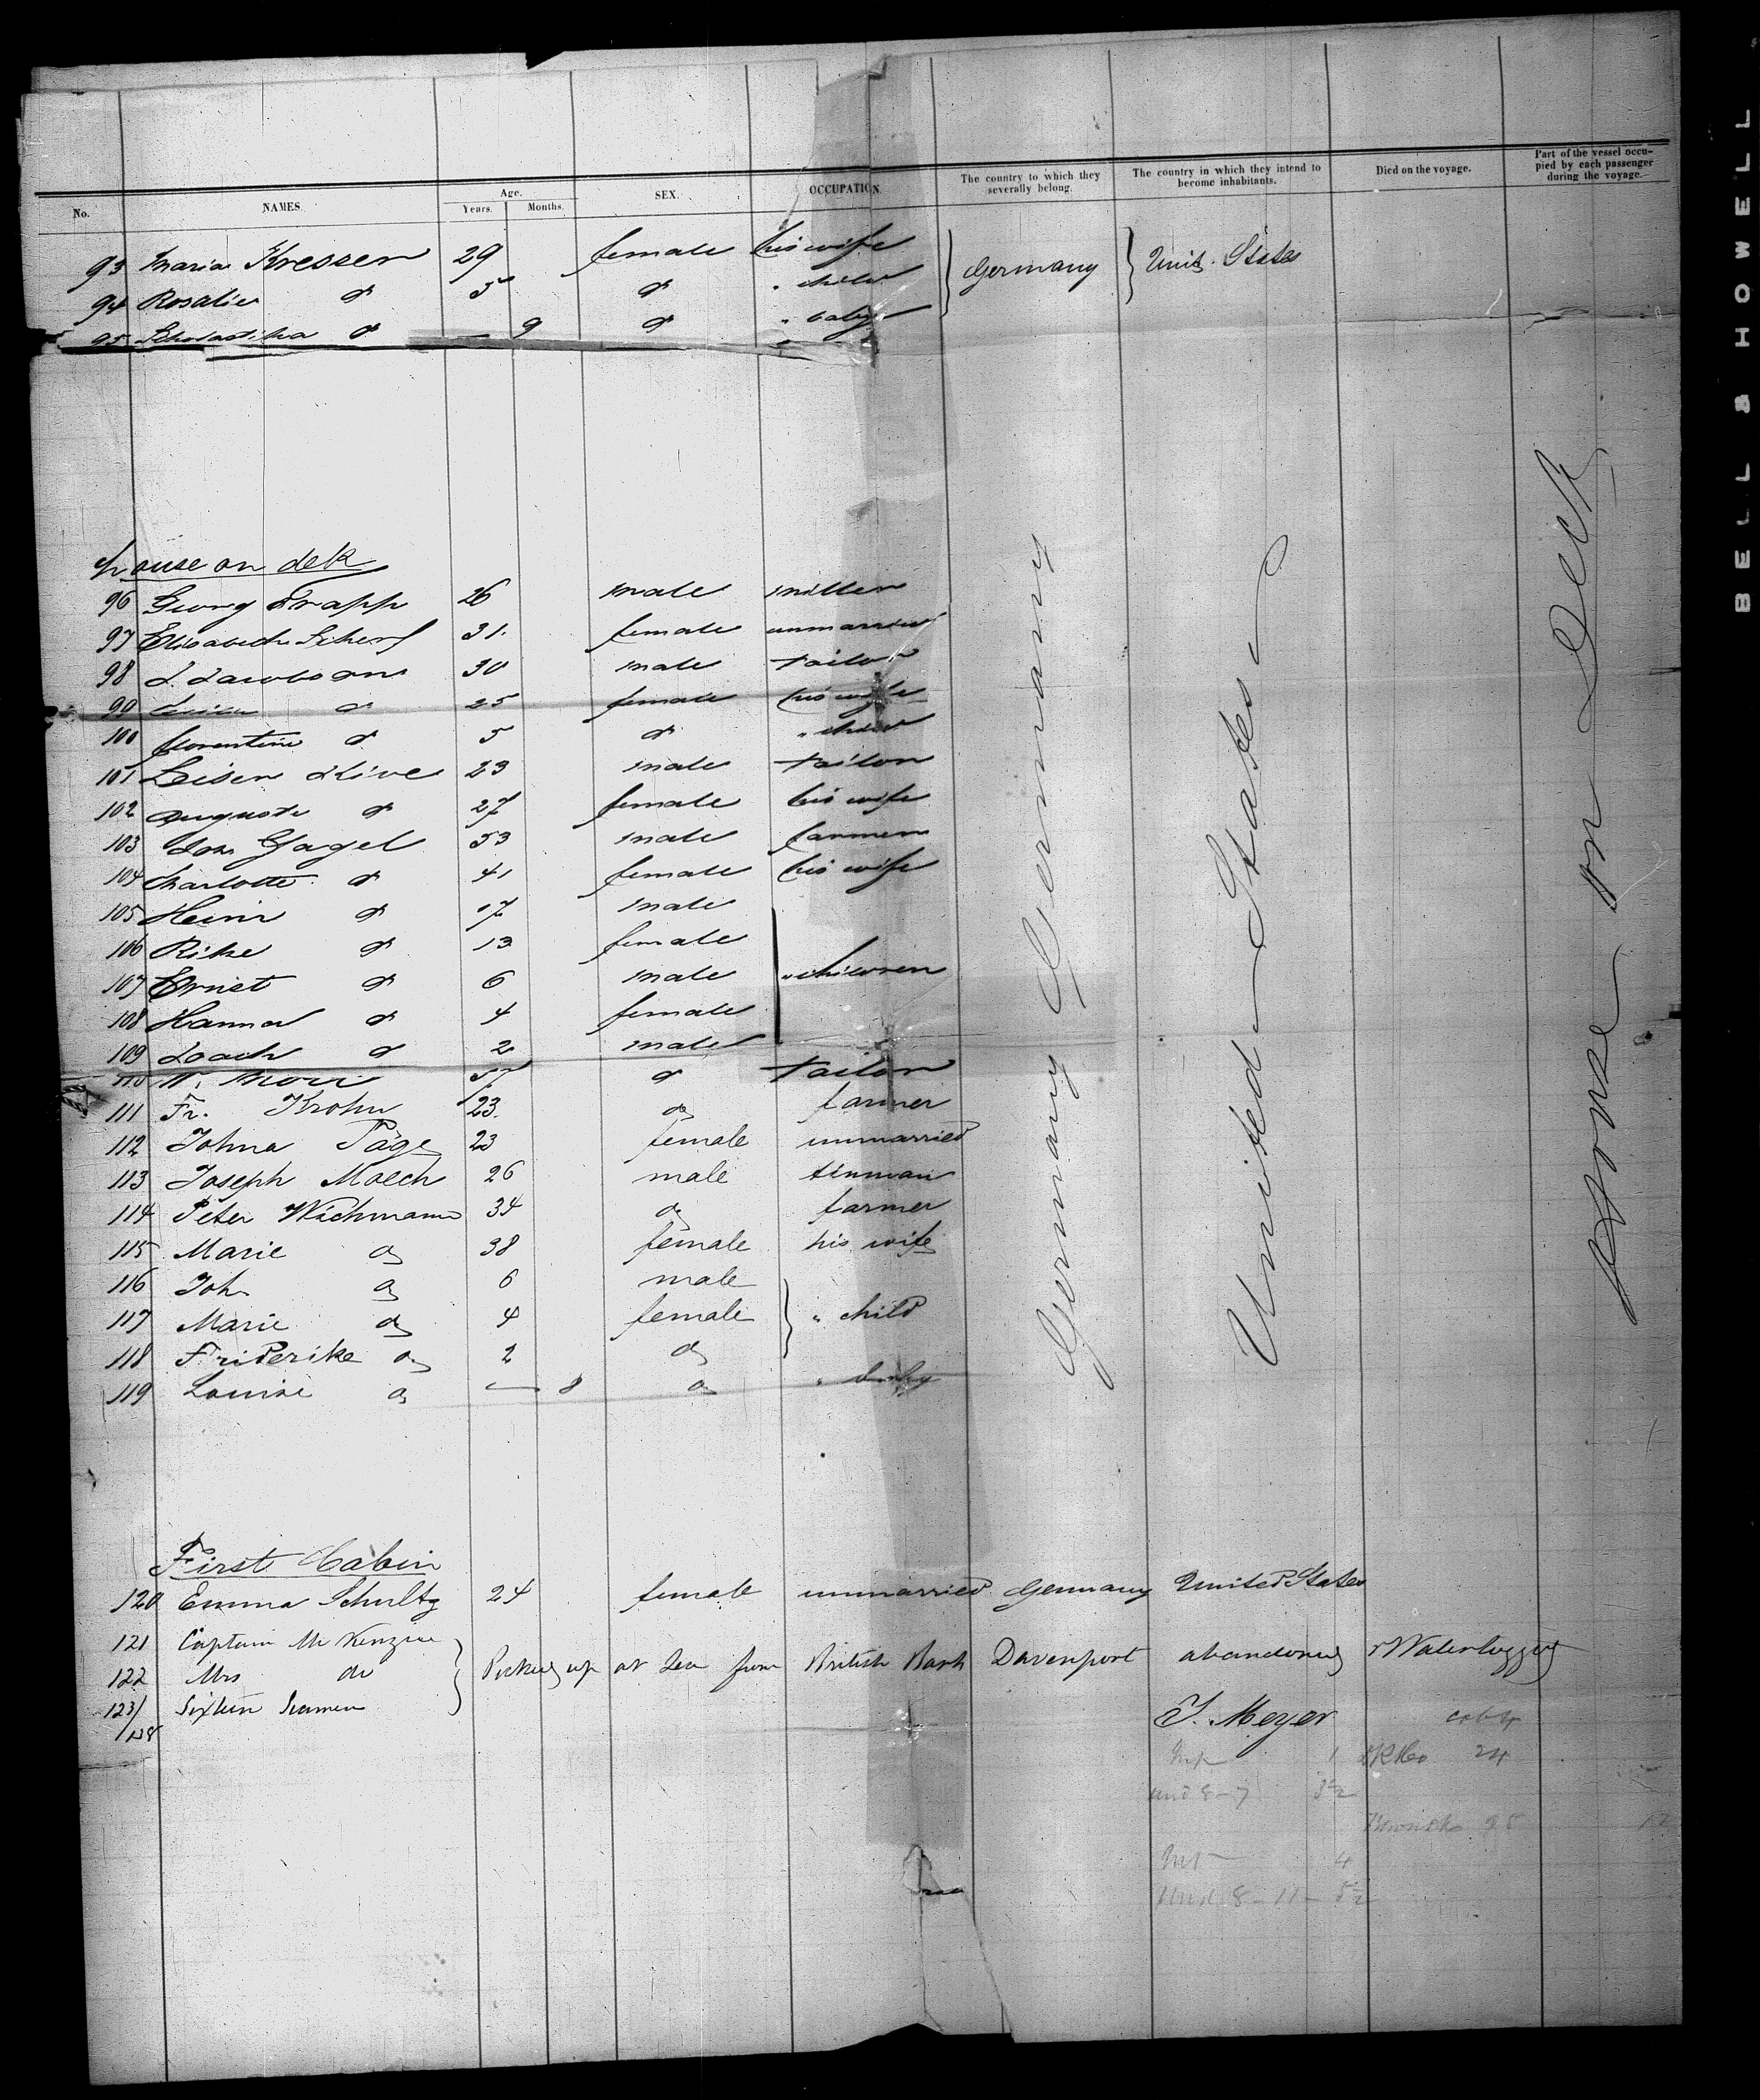 No. NAMES. Age. Years. Months. SEX. OCCUPATION. The country to which they severally belong. The country in which they intend to become inhabitants. Died on the voyage. Part of the vessel occupied by each passenger during the voyage.
93 Maria Kresser 29 female his wife Germany Unit. States
94 Rosalie do 5 do " child
95 Scholastika do — 9 do " baby
house on dek
96 Georg Trapp 26 male miller
97 Elisabeth Scherf 31. female unmarried
98 L. Jacobson 30 male tailor
99 do 25 female his wife
100 florentine do 5 do " child
101 Leiser 23 male tailor
102 Auguste do 27 female his wife
103 Gagel 53 male farmer
104 Charlotte do 41 female his wife
105 Heinr do 17 male
106 Rike do 13 female
107 Ernst do 6 male " children
108 Hanna do 4 female
109 Joach do 2 male
110 57 do tailor
111 Fr. Krohn 23. do farmer
112 Johna Päge 23 female unmarried
113 Joseph Molch 26 male tinman
114 Peter Wichmann 34 do farmer
115 Marie do 38 female his wife
116 Joh. do 6 male
117 Marie do 4 female " child
118 Friderike do 2 do
119 Louise do — 8 do " baby
Germany Germany
United States
House on Deck
First Cabin
120 Emma Schultz 24 female unmarried Germany United States
121 Captain McKenzie
122 Mrs do Picked up at Sea from British Bark Davenport abandoned & Waterlogged
123/138 Sixteen Seamen
J. Meyer
BELL & HOWELL